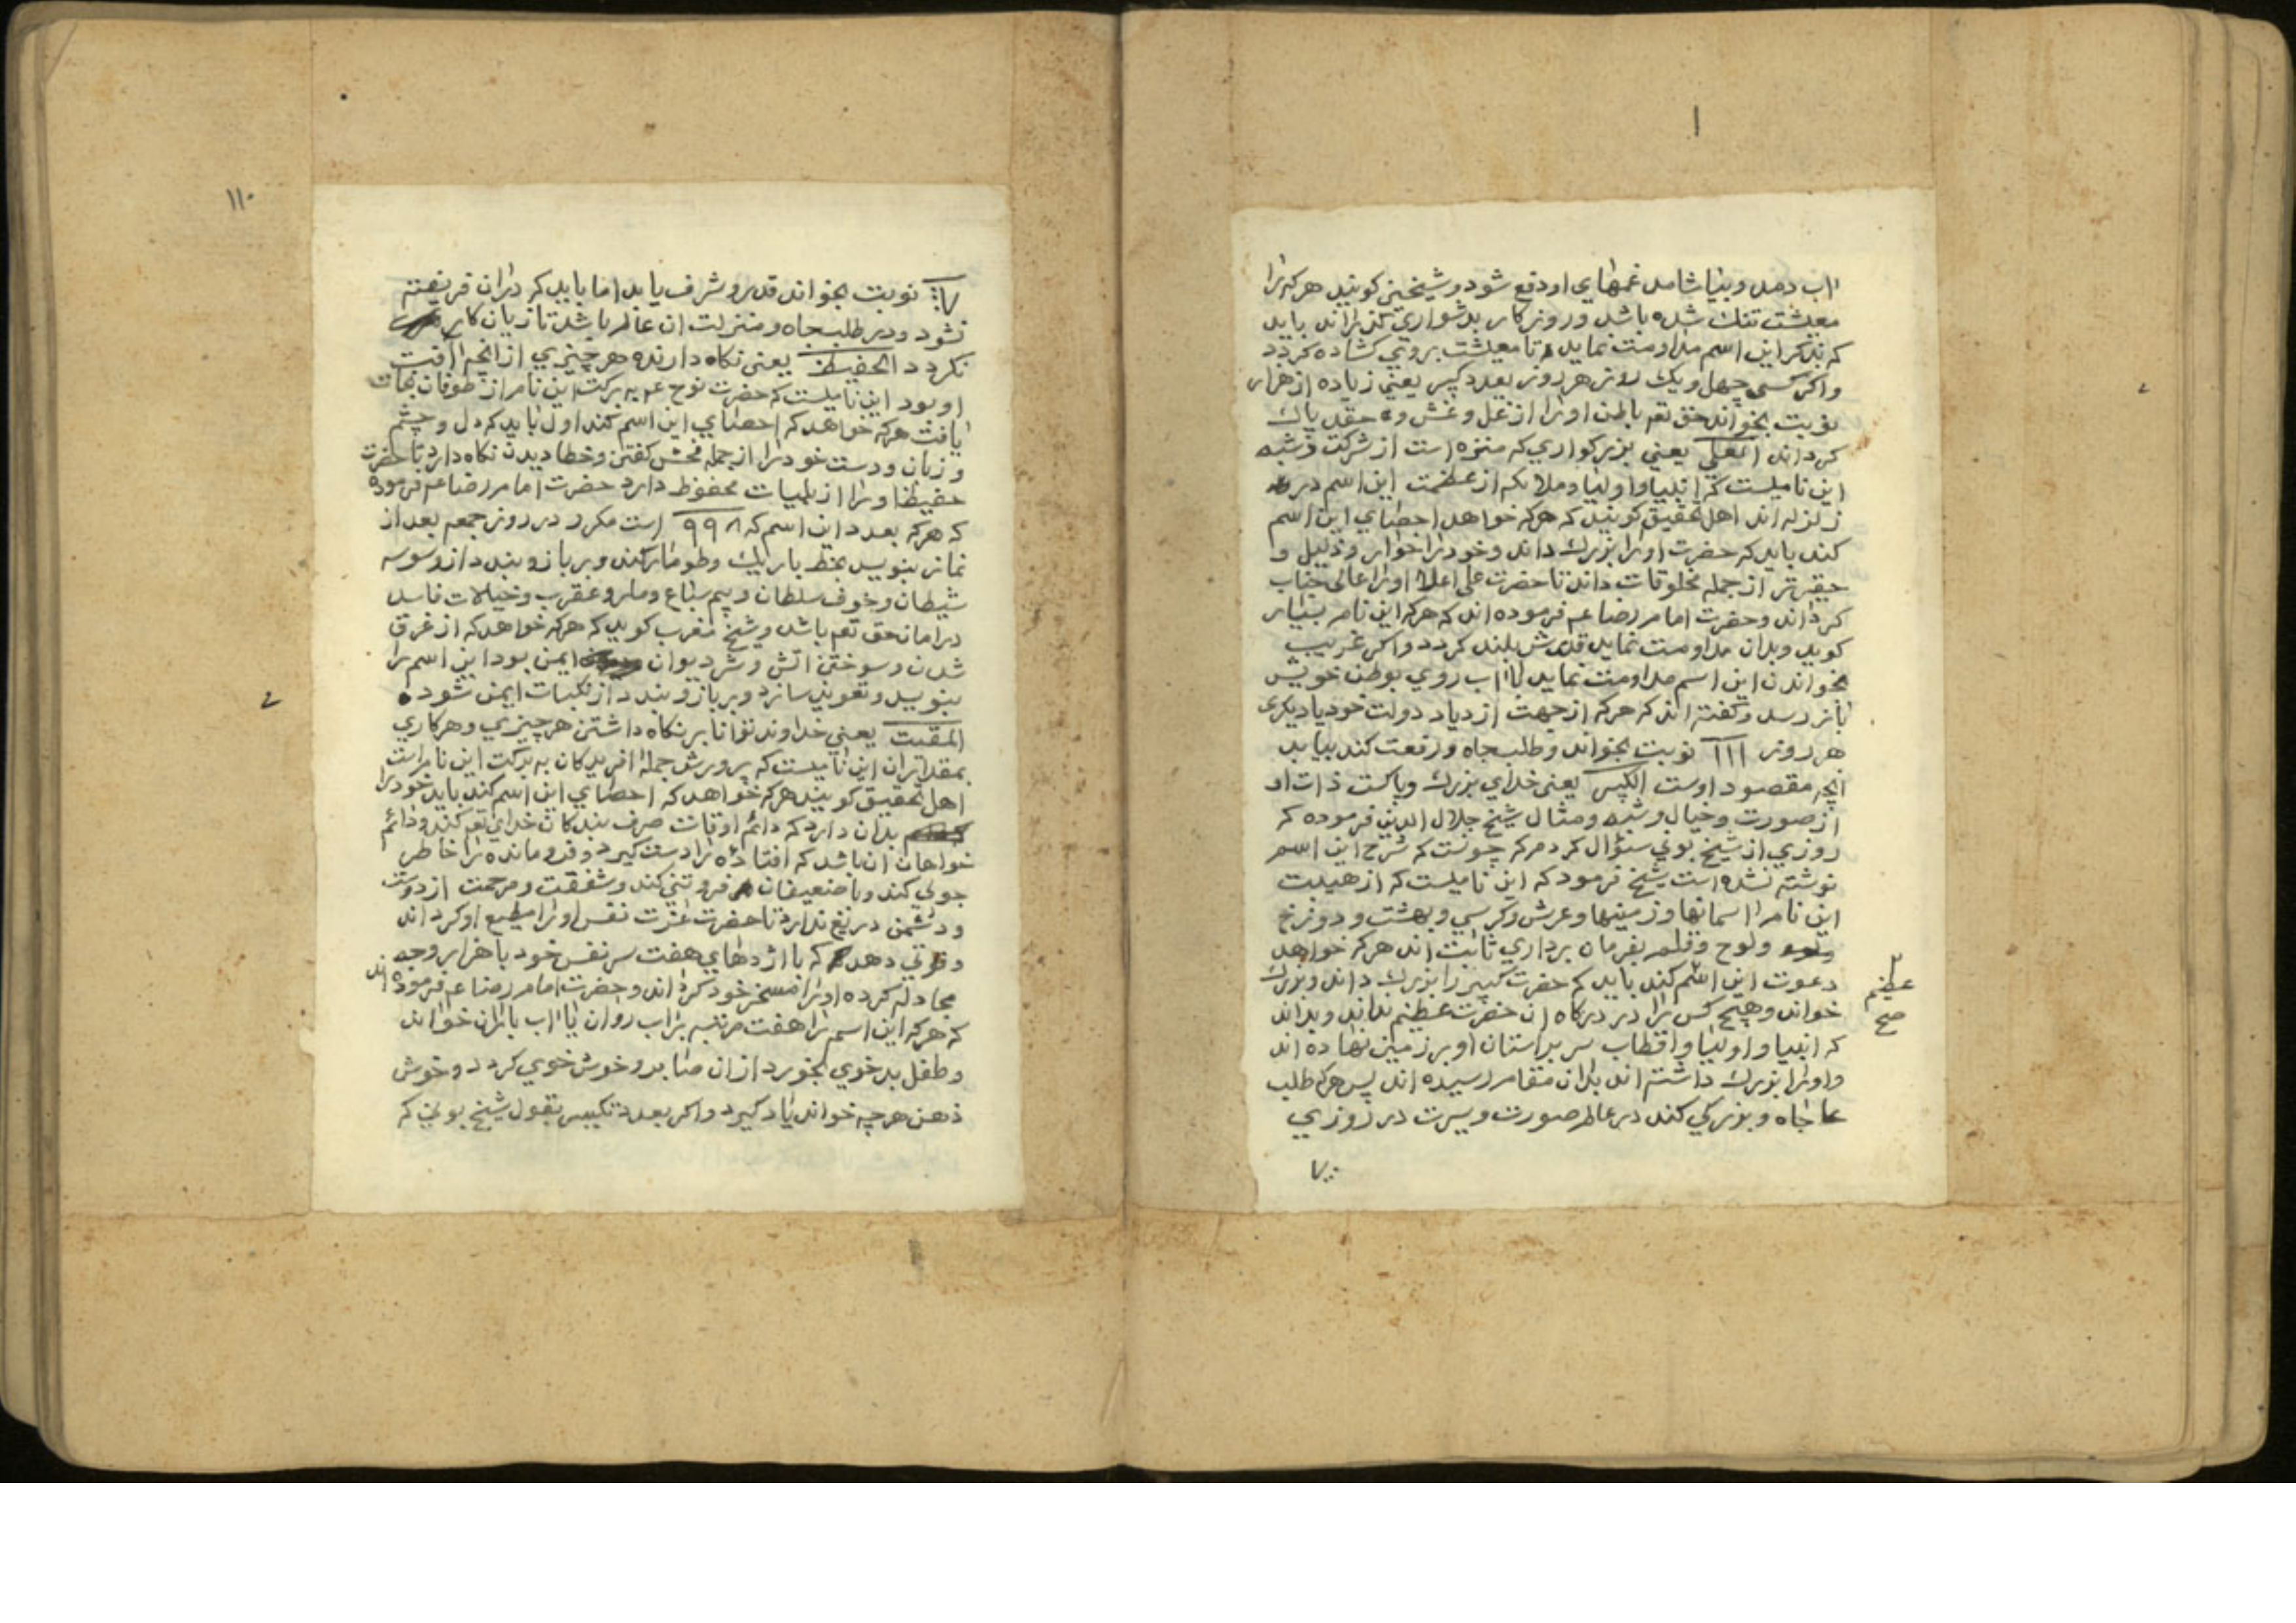 اب دهد و بنیاشامد غمهای او دفع شود و شیخین کویند هرکه را
معیشت تنك شده باشد و روزکار بدشواری کذراند باید
که بذکر این اسم مداومت نماید تا معیشت بروی کشاده کردد
واکر کسی چهل ویك روز هر روز بعدد کبیر یعنی زیاده از هزار
نوبت بخواند حق تعم باطن اورا از غل و غش و حقد پاك
کرداند العلی یعنی بزرکواری که منزه است از شرکت و شبه
این نامیست که انبیا واولیا و ملائکه از عظمت این اسم در
زلزله اند اهل تحقیق کویند که هرکه خواهد احصای این اسم
کند باید که حضرت اورا بزرك داند وخودرا خوار و ذلیل و
حقیرتر از جمله مخلوقات داند تا حضرت علی اعلا اورا عالی جناب
کرداند وحضرت امام رضا عم فرموده اند که هرکه این نام بسیار
کوید وبدان مداومت نماید قدرش بلند کردد واکر غریب
بخواندن این اسم مداومت نماید باب روی بوطن خویش
باز رسد وکفته اند که هرکه از جهت ازدیاد دولت خود یا دیکری
هر روز ١١١ نوبت بخواند وطلب جاه ورفعت کند بیابد
انچه مقصود اوست الکبیر یعنی خدای بزرك وپاکست ذات او
از صورت وخیال وشبه ومثال شیخ جلال الدین فرموده که
روزی از شیخ بونی سئوال کردم که چونست که شرح این اسم
نوشته نشده است شیخ فرمود که این نامیست که از هیبت
این نام اسمانها وزمینها وعرش وکرسی وبهشت ودوزخ
ولوح وقلم بفرمان برداری ثابت اند هرکه خواهد
دعوت این اسم کند باید که حضرت کبیر را بزرك داند وبزرك
عظیم
صح
خواند وهیچ کس را در درکاه ان حضرت عظیم نداند وبداند
که انبیا واولیا واقطاب سر براستان او بر زمین نهاده اند
واورا بزرك داشته اند بدان مقام رسیده اند پس هرکه طلب
جاه وبزرکی کند در عالم صورت وسیرت در روزی
نوبت بخواند قدر وشرف یابد اما باید که دران فریفته
نشود ودر طلب جاه ومنزلت ان عالم باشد تا زیان کار
نکردد الحفیظ یعنی نکاه دارنده هرچیزی از انچه افت
او بود این نامیست که حضرت نوح عم به برکت این نام از طوفان نجات
یافت هرکه خواهد که احصای این اسم کند اول باید که دل وچشم
وزبان ودست خودرا از جمله فحش کفتن وخطا دیدن نکاه دارد تا حضرت
حفیظ اورا از بلیات محفوظ دارد حضرت امام رضا عم فرموده
که هرکه بعدد این اسم که ٩٩٨ است مکرر در روز جمعه بعد از
نماز بنویسد بخط باریك وطومار کند وبر بازو بندد از وسوسه
شیطان وخوف سلطان وبیم سباع ومار وعقرب وخیالات فاسد
در امان حق تعم باشد وشیخ مغرب کوید که هرکه خواهد که از غرق
شدن وسوختن اتش وشر دیوان ایمن بود این اسم را
بنویسد وتعویذ سازد وبر بازو بندد از نکبات ایمن شود
المقیت یعنی خداوند توانا بر نکاه داشتن هر چیزی وهرکاری
بمقدار ان این نامیست که پرورش جمله افریدکان به برکت این نام است
اهل تحقیق کویند هرکه خواهد که احصای این اسم کند باید خودرا
بدان دارد که دائم اوقات صرف بندکان خدای تعم کند ودائم
خواهان ان باشد که افتاده را دست کیرد وفرومانده را خاطر
جوئی کند وبا ضعیفان فروتنی کند وشفقت ومرحمت از دوست
ودشمن دریغ ندارد تا حضرت عزت نفس اورا مطیع او کرداند
وقوتی دهد که با اژدهای هفت سر نفس خود با هزار وجه
مجادله کرده اورا مسخر خود کرداند وحضرت امام رضا عم فرموده اند
که هرکه این اسم را هفت مرتبه بر اب روان یا اب باران خواند
وطفل بد خوی بخورد از ان صابر وخوش خوی کردد وخوش
ذهن هرچه خواند یاد کیرد واکر بعدد تکبیر بقول شیخ بونی که
١١٠